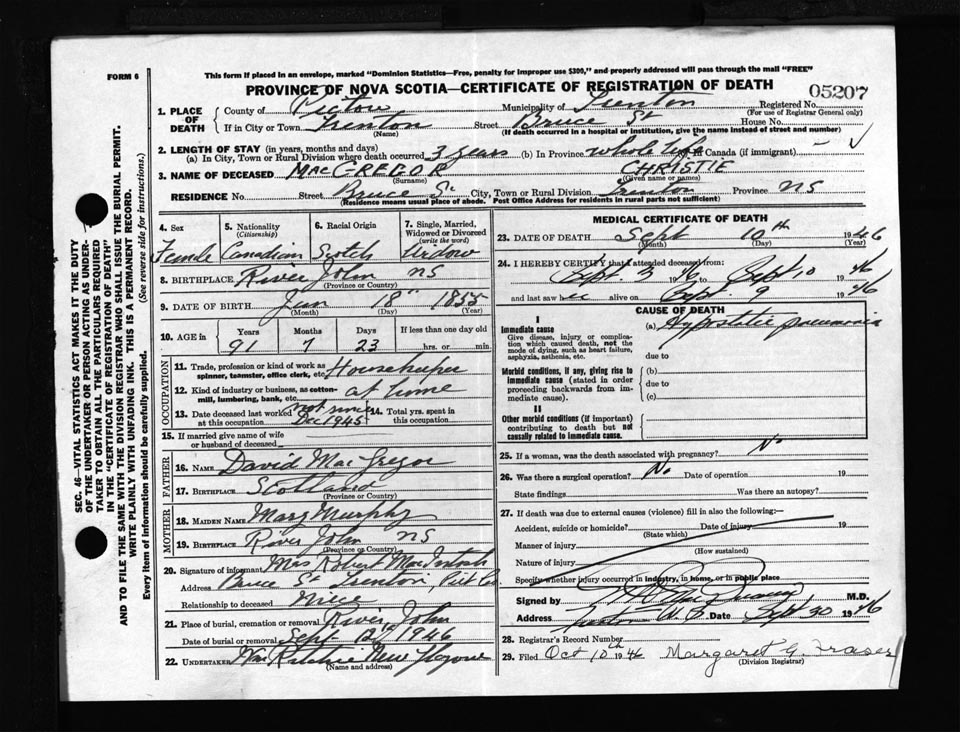 FORM 6
This form if placed in an envelope, marked "Dominion Statistics—Free, penalty for improper use $300," and properly addressed will pass through the mail "FREE"
PROVINCE OF NOVA SCOTIA—CERTIFICATE OF REGISTRATION OF DEATH
05207
1. PLACE OF DEATH
County of Pictou Municipality of Trenton Registered No.
(For use of Registrar General only)
If in City or Town Trenton Street Bruce St House No.
(Name) (If death occurred in a hospital or institution, give the name instead of street and number)
2. LENGTH OF STAY (in years, months and days)
(a) In City, Town or Rural Division where death occurred 3 years (b) In Province whole life (c) In Canada (if immigrant) —
3. NAME OF DECEASED MACGREGOR CHRISTIE
(Surname) (Given name or names)
RESIDENCE No. Street Bruce St City, Town or Rural Division Trenton Province NS
(Residence means usual place of abode. Post Office Address for residents in rural parts not sufficient)
4. Sex Female
5. Nationality (Citizenship) Canadian
6. Racial Origin Scotch
7. Single, Married, Widowed or Divorced (write the word) Widow
8. BIRTHPLACE River John NS
(Province or Country)
9. DATE OF BIRTH Jan 18 1855
(Month) (Day) (Year)
10. AGE in Years Months Days If less than one day old
91 7 23 hrs. or min.
OCCUPATION
11. Trade, profession or kind of work as spinner, teamster, office clerk, etc. Housekeeper
12. Kind of industry or business, as cotton-mill, lumbering, bank, etc. at home
13. Date deceased last worked at this occupation not since Dec 1945
14. Total yrs. spent in this occupation
15. If married give name of wife or husband of deceased
FATHER
16. NAME David MacGregor
17. BIRTHPLACE Scotland
(Province or Country)
MOTHER
18. MAIDEN NAME Mary Murphy
19. BIRTHPLACE River John NS
(Province or Country)
20. Signature of informant Mrs Robert MacIntosh
Address Bruce St Trenton, Pict Co.
Relationship to deceased Niece
21. Place of burial, cremation or removal River John
Date of burial or removal Sept 12 1946
22. UNDERTAKER Wm Ritchie New Glasgow
(Name and address)
MEDICAL CERTIFICATE OF DEATH
23. DATE OF DEATH Sept 10th 1946
(Month) (Day) (Year)
24. I HEREBY CERTIFY that I attended deceased from:
Sept. 3 46 to Sept 10 1946
and last saw alive on Sept. 9 1946
CAUSE OF DEATH
I
Immediate cause
Give disease, injury or complication which caused death, not the mode of dying, such as heart failure, asphyxia, asthenia, etc.
(a) Hypostatic pneumonia
due to
Morbid conditions, if any, giving rise to immediate cause (stated in order proceeding backwards from immediate cause).
(b)
due to
(c)
II
Other morbid conditions (if important) contributing to death but not causally related to immediate cause.
25. If a woman, was the death associated with pregnancy? No
26. Was there a surgical operation? No Date of operation 19
State findings Was there an autopsy?
27. If death was due to external causes (violence) fill in also the following:—
Accident, suicide or homicide? Date of injury 19
(State which)
Manner of injury
(How sustained)
Nature of injury
Specify whether injury occurred in industry, in home, or in public place
Signed by M.D.
Address Date Sept 30 1946
28. Registrar's Record Number
29. Filed Oct 10th 1946 Margaret G. Fraser
(Division Registrar)
SEC. 46—VITAL STATISTICS ACT MAKES IT THE DUTY
OF THE UNDERTAKER OR PERSON ACTING AS UNDER-
TAKER TO OBTAIN ALL THE PARTICULARS REQUIRED
IN THE "CERTIFICATE OF REGISTRATION OF DEATH"
AND TO FILE THE SAME WITH THE DIVISION REGISTRAR WHO SHALL ISSUE THE BURIAL PERMIT.
WRITE PLAINLY WITH UNFADING INK. THIS IS A PERMANENT RECORD.
Every item of Information should be carefully supplied. (See reverse side for instructions.)